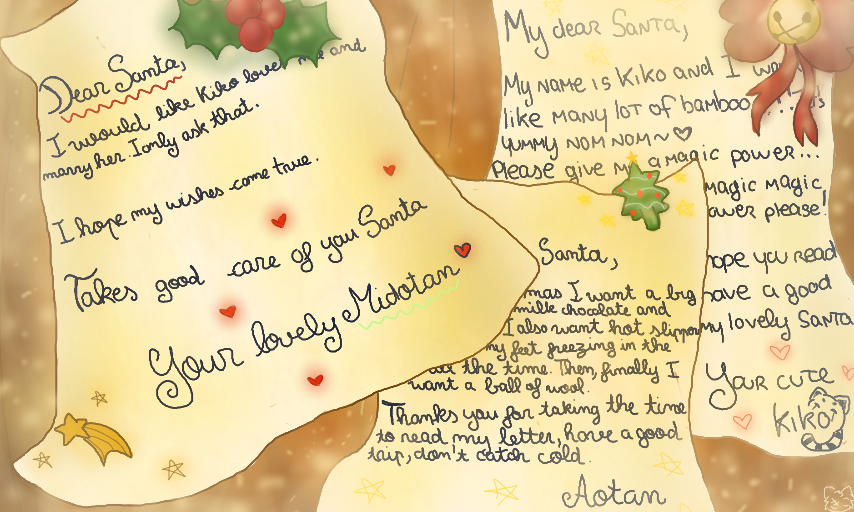 Dear Santa,
I would like Kiko love me and
marry her. I only ask that.
I hope my wishes come true.
Takes good care of you Santa
Your lovely Midotan
My dear Santa,
My name is Kiko and I
like many lot of bamboo
yummy nom nom ~ ♡
Please give me a magic power...
magic magic
please!
you read
have a good
my lovely Santa
Your cute
Kiko
Santa,
I want a big
milk chocolate and
I also want hot slipper
my feet freezing in the
all the time. Then, finally I
want a ball of wool.
Thanks you for taking the time
to read my letter, have a good
trip, don't catch cold.
Aotan